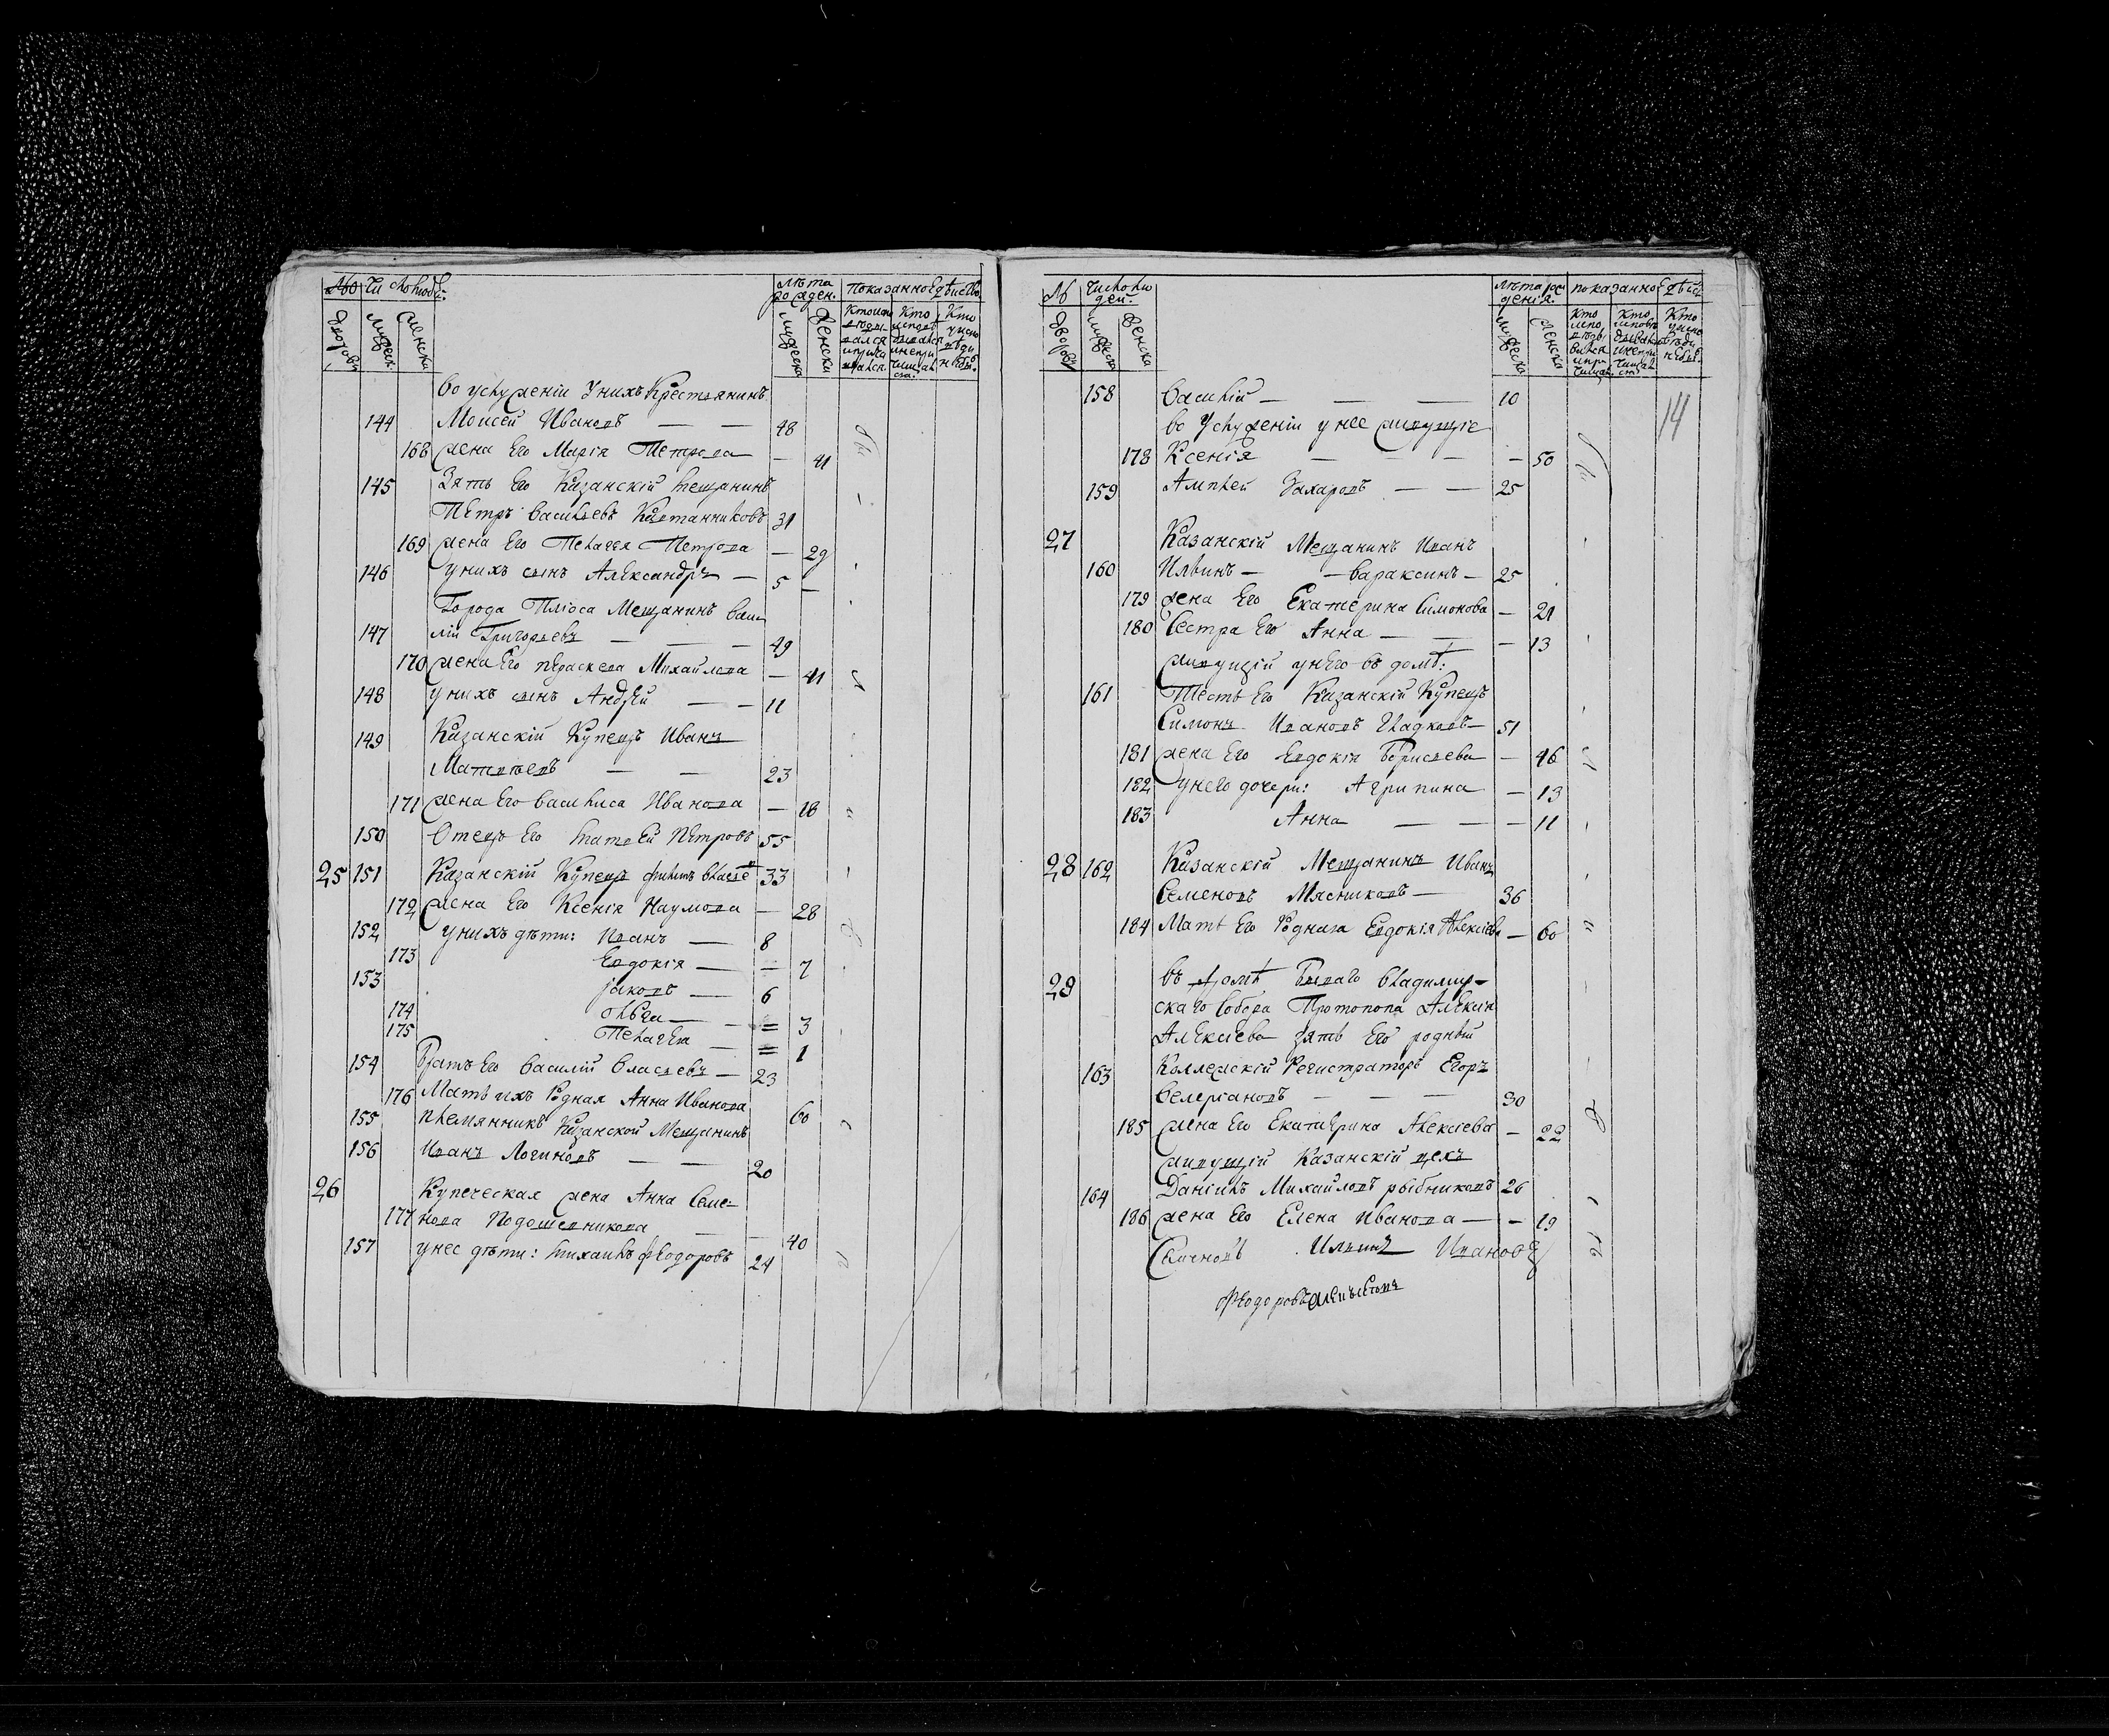 № Число людей.
Лѣта рожден.
Показано дѣйство
Дворовъ
Мужеска
Женска
Мужеска
Женска
во услуженіи у нихъ крестьянинъ
144 Моисей Ивановъ — — 48
168 жена его Марія Петрова — 41
145 Зять его Казанскій мещанинъ
Петръ Васильевъ 31
169 жена его Пелагея Петрова — 29
146 у нихъ сынъ Александръ — 5 —
Города Пліоса Мещанинъ Васи
147 лій Григорьевъ — — — 49
170 жена его Параскева Михайлова — 41
148 у нихъ сынъ Андрей — — 11
149 Казанскій Купецъ Иванъ
Матвѣевъ — — 23
171 жена его Василиса Иванова — 18
150 Отецъ его Матвей Петровъ 55
25 151 Казанскій Купецъ Филипъ Власіевъ 33
172 жена его Ксенія Наумова — 28
152 у нихъ дѣти: Иванъ — 8
173 Евдокія — — 7
153 Яковъ — 6
174 Ольга — — 3
175 Пелагея — 1
154 Братъ его Василій Власьевъ — 23
176 Мать ихъ родная Анна Иванова 60
155 племянникъ Казанской Мещанинъ
156 Иванъ Логиновъ — — 20
26 Купеческая жена Анна Семе-
177 нова Подошевникова — — 40
157 у нее дѣти: Михаилъ Феодоровъ 24
№ Число людей.
Лѣта рожденія.
показано дѣйс
Дворовъ
Мужеска
Женска
Мужеска
Женска
14
158 Василій — — — 10
во услуженіи у нее живущіе
178 Ксенія — — — — 50
159 Алексей Захаровъ — — 25
27 Казанскій Мещанинъ Иванъ
160 Ильинъ — — Вараксинъ — 25
179 жена его Екатерина Симонова — 21
180 Сестра его Анна — — — 13
живущій у него въ домѣ:
161 Тесть его Казанскій Купецъ
Симонъ Ивановъ Гладковъ — 51
181 жена его Евдокія Борисьева — 46
182 у него дочери: Агрипина — 13
183 Анна — — — 11
28 162 Казанскій Мещанинъ Иванъ
Семеновъ Мясниковъ — 36
184 Мать его родная Евдокія Алексіева — 60
29 въ домѣ бывшаго Владимир-
скаго Собора Протопопа Алексія
Алексіева зять его родный
163 Коллежскій Регистраторъ Егоръ
Велеріановъ — — — 30
185 жена его Екатерина Алексіева — 22
живущій Казанскій цехъ
164 Даніилъ Михайловъ рыбниковъ 26
186 жена его Елена Иванова — — 19
Ильинъ Ивановъ
Феодоровъ